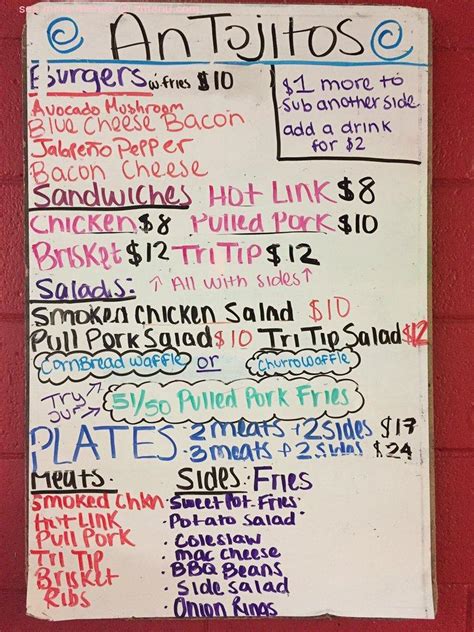 AnTojitos
Burgers w/fries $10
Avocado Mushroom
Blue Cheese Bacon
Jalapeño Pepper
Bacon Cheese
$1 more to
sub another side
add a drink
for $2
Sandwiches Hot Link $8
Chicken $8 Pulled Pork $10
Brisket $12 Tri Tip $12
↑ All with sides ↑
Salads:
Smoked Chicken Salad $10
Pull Pork Salad $10 Tri Tip Salad $12
CornBread Waffle or Churro Waffle
Try our → 51/50 Pulled Pork Fries
PLATES 2 meats + 2 Sides $17
3 meats + 2 Sides $24
Meats
Smoked Chkn
Hot Link
Pull Pork
Tri Tip
Brisket
Ribs
Sides: Fries
• Sweet Pot. Fries
• Potato Salad
• Coleslaw
• Mac Cheese
• BBQ Beans
• Side Salad
• Onion Rings